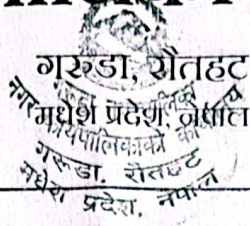 गरुडा, रौतहट
मधेश प्रदेश, नेपाल
नगर कार्यपालिकाको कार्यालय
गरूडा, रौतहट
मधेश प्रदेश, नेपाल